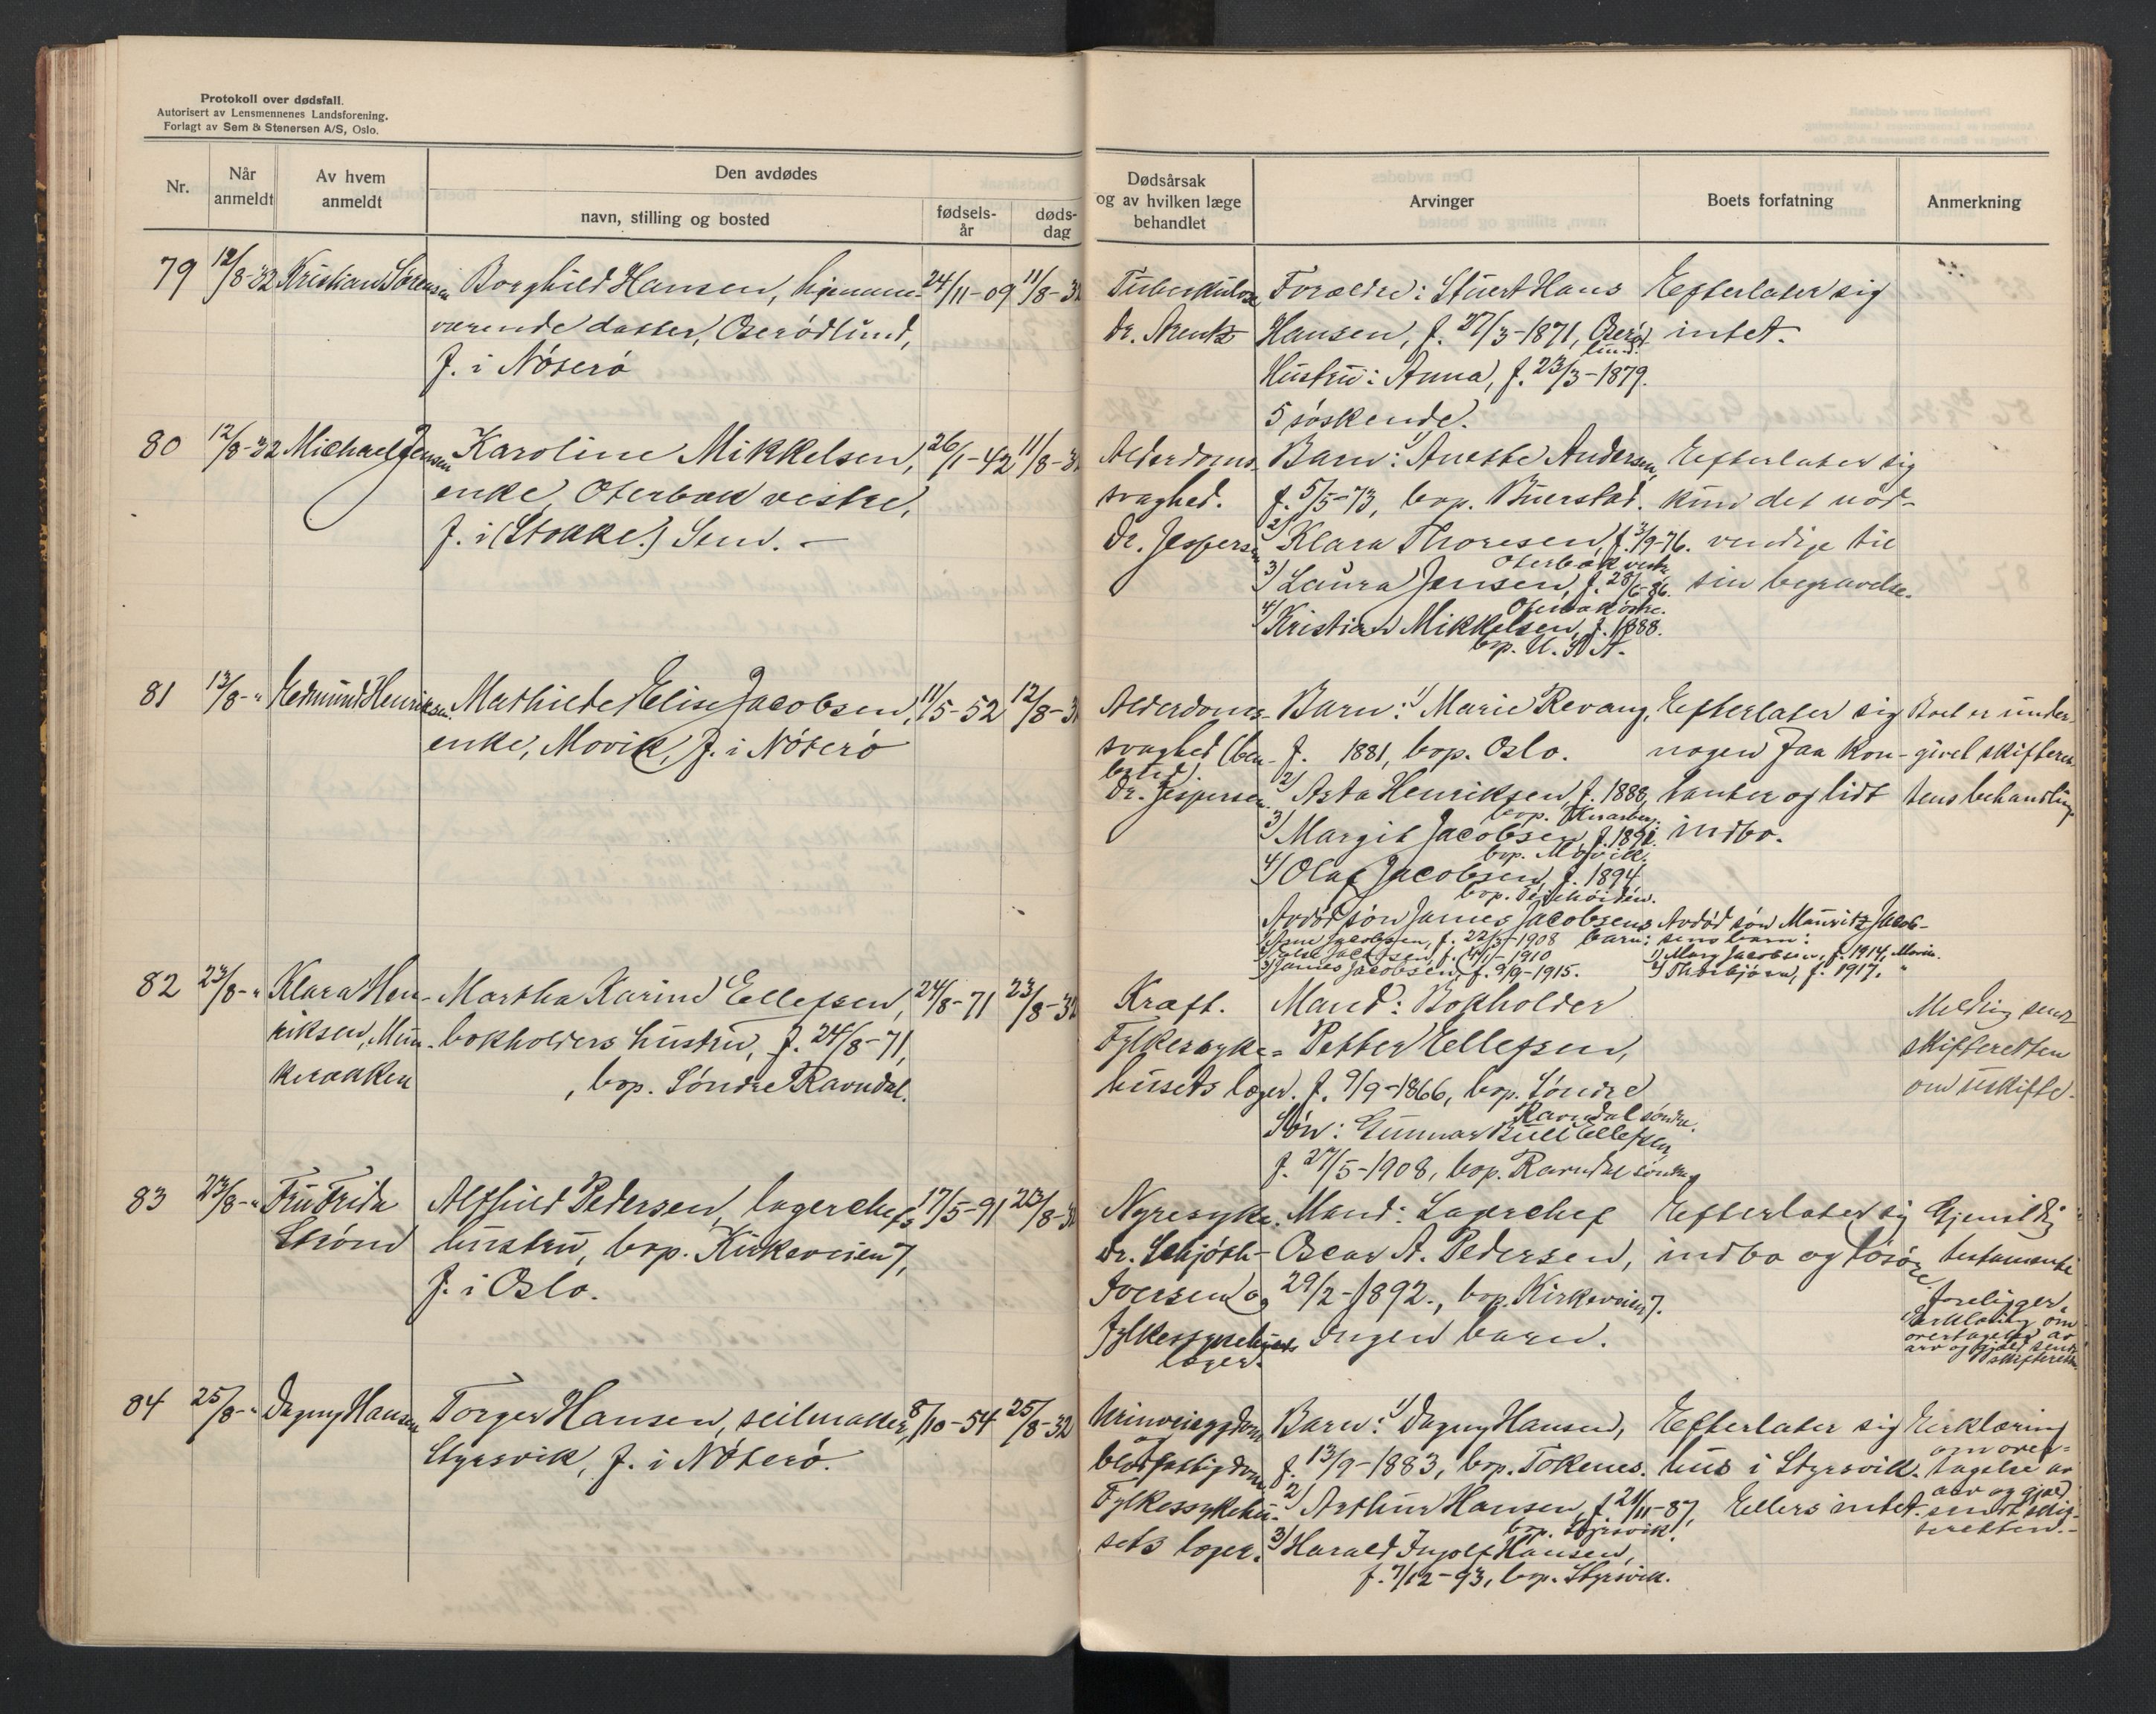 Protokoll over dødsfall.
Autorisert av Lensmennenes Landsforening.
Forlagt av Sem & Stenersen A/S, Oslo.
Nr.
Når anmeldt
Av hvem anmeldt
Den avdødes
navn, stilling og bosted
fødsels-år
døds-dag
Dødsårsak og av hvilken læge behandlet
Arvinger
Boets forfatning
Anmerkning
79 12/8-32 Kristian Sørensen Borghild Hansen, hjemme- 24/11-09 11/8-32
værende datter, Oserødlund,
f. i Nøterø
Tuberkulose
Dr. Arentz
Forældre: Stuert Hans
Hansen, f. 27/3-1871, Oserød
lund.
Hustru: Anna, f. 23/3-1879.
5 søskende.
Efterlater sig
intet.
80 12/8-32 Michael Jensen Karoline Mikkelsen, 26/1-42 11/8-32
enke, Oterbæk vestre,
f. i (Stokke.) Sem. -
Alderdoms-
svaghed.
Dr. Jespersen
Barn: 1) Anette Andersen,
f. 5/5-73, bop. Buerstad.
2) Klara Thoresen, f. 3/9-76.
Oterbæk vestre
3) Laura Jensen, f. 28/6-86.
Oterbæk østre.
4) Kristian Mikkelsen, f. 1888.
bop. U.S.A.
Efterlater sig
kun det nød-
vendige til
sin begravelse.
81 13/8-" Edmund Henriksen. Mathilde Elise Jacobsen, 11/5-52 12/8-32
enke, Movik, f. i Nøterø
Alderdoms-
svaghed (ben-
brud).
Dr. Jespersen.
Barn: 1) Marie Revang,
f. 1881, bop. Oslo.
2) Asta Henriksen, f. 1888,
3) Margit Jacobsen, f. 1891.
bop. Movik.
4) Olaf Jacobsen, f. 1894
Avdød søn James Jacobsens
barn:
1) Arne Jacobsen, f. 22/3-1908
1910
3) James Jacobsen, f. 9/9-1915.
Efterlater sig
nogen faa kon-
tanter og lidt
indbo.
Avdød søn Mauritz Jacob-
sens barn:
1) Mary Jacobsen, f. 1914, Movik.
2) Thorbjørn, f. 1917. "
Boet er under-
givet skifteret-
tens behandling
82 23/8-" Klara Hen- Martha Karine Ellefsen, 24/8-71 23/8-32
riksen, Mun- bokholders hustru, f. 24/8-71,
kerækken , bop. Søndre Ravndal.
Kræft.
Fylkessyke-
husets læger.
Mand: Bokholder
Petter Ellefsen,
f. 9/9-1866, bop. Søndre
Ravndal søndre.
Søn: Gunnar Bull Ellefsen
f. 27/5-1908, bop. Ravndal søndre
Melding sendt
skifteretten
om uskifte.
83 23/8-" Fru Frida Alfhild Pedersen, lagerchefs 17/5-91 23/8-32
Strønd hustru, bop. Kirkeveien 7,
f. i Oslo.
Nyresykd.
Dr. Schjøth-
Iversen og
Fylkessykehusets
læger.
Mand: Lagerchef
Oscar A. Pedersen,
29/2-1892., bop. Kirkeveien 7.
Ingen barn.
Efterlater sig
indbo og løsøre
Gjensidig
testamente
foreligger.
Erklæring om
overtagelse av
arv og gjæld sendt
skifteretten.
84 25/8-" Dagny Hansen Torger Hansen, seilmaker, 8/10-54 25/8-32
Styrsvik, f. i Nøterø.
Urinveissygdom
og
blodfattigdom
Fylkessykehu-
sets læger.
Barn: 1) Dagny Hansen,
f. 13/9-1883, bop. Tokenes.
2) Arthur Hansen, f. 21/11-87,
bop. Styrsvik.
3) Harald Ingolf Hansen,
f. 7/12-93, bop. Styrsvik.
Efterlater sig
hus i Styrsvik.
Ellers intet.
Erklæring
om over-
tagelse av
arv og gjæld
sendt skif-
teretten.-